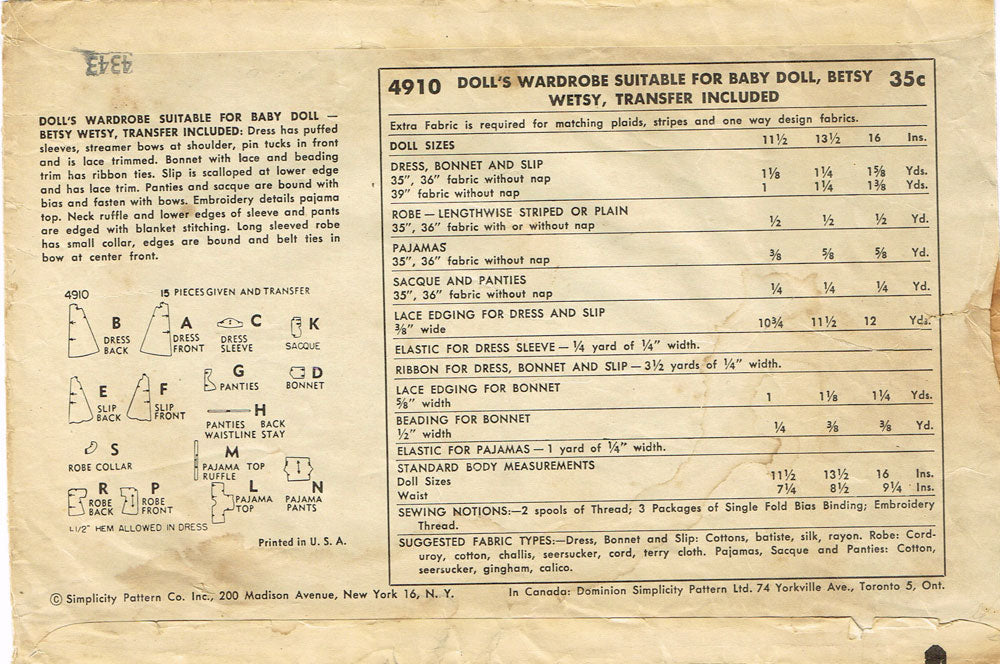 4343
DOLL'S WARDROBE SUITABLE FOR BABY DOLL —
BETSY WETSY, TRANSFER INCLUDED: Dress has puffed
sleeves, streamer bows at shoulder, pin tucks in front
and is lace trimmed. Bonnet with lace and beading
trim has ribbon ties. Slip is scalloped at lower edge
and has lace trim. Panties and sacque are bound with
bias and fasten with bows. Embroidery details pajama
top. Neck ruffle and lower edges of sleeve and pants
are edged with blanket stitching. Long sleeved robe
has small collar, edges are bound and belt ties in
bow at center front.
4910 15 PIECES GIVEN AND TRANSFER
B DRESS BACK
A DRESS FRONT
C DRESS SLEEVE
K SACQUE
E SLIP BACK
F SLIP FRONT
G PANTIES
D BONNET
H PANTIES BACK WAISTLINE STAY
S ROBE COLLAR
M PAJAMA TOP RUFFLE
R ROBE BACK
P ROBE FRONT
L PAJAMA TOP
N PAJAMA PANTS
1/2" HEM ALLOWED IN DRESS
Printed in U. S. A.
4910 DOLL'S WARDROBE SUITABLE FOR BABY DOLL, BETSY 35c
WETSY, TRANSFER INCLUDED
Extra Fabric is required for matching plaids, stripes and one way design fabrics.
DOLL SIZES 11½ 13½ 16 Ins.
DRESS, BONNET AND SLIP
35", 36" fabric without nap 1⅛ 1¼ 1⅝ Yds.
39" fabric without nap 1 1¼ 1⅜ Yds.
ROBE — LENGTHWISE STRIPED OR PLAIN
35", 36" fabric with or without nap ½ ½ ½ Yd.
PAJAMAS
35", 36" fabric without nap ⅜ ⅝ ⅝ Yd.
SACQUE AND PANTIES
35", 36" fabric without nap ¼ ¼ ¼ Yd.
LACE EDGING FOR DRESS AND SLIP
⅜" wide 10¾ 11½ 12 Yds.
ELASTIC FOR DRESS SLEEVE — ¼ yard of ¼" width.
RIBBON FOR DRESS, BONNET AND SLIP — 3½ yards of ¼" width.
LACE EDGING FOR BONNET
⅝" width 1 1⅛ 1¼ Yds.
BEADING FOR BONNET
½" width ¼ ⅜ ⅜ Yd.
ELASTIC FOR PAJAMAS — 1 yard of ¼" width.
STANDARD BODY MEASUREMENTS
Doll Sizes 11½ 13½ 16 Ins.
Waist 7¼ 8½ 9¼ Ins.
SEWING NOTIONS:—2 spools of Thread; 3 Packages of Single Fold Bias Binding; Embroidery
Thread.
SUGGESTED FABRIC TYPES:—Dress, Bonnet and Slip: Cottons, batiste, silk, rayon. Robe: Cord-
uroy, cotton, challis, seersucker, cord, terry cloth. Pajamas, Sacque and Panties: Cotton,
seersucker, gingham, calico.
© Simplicity Pattern Co. Inc., 200 Madison Avenue, New York 16, N. Y. In Canada: Dominion Simplicity Pattern Ltd. 74 Yorkville Ave., Toronto 5, Ont.